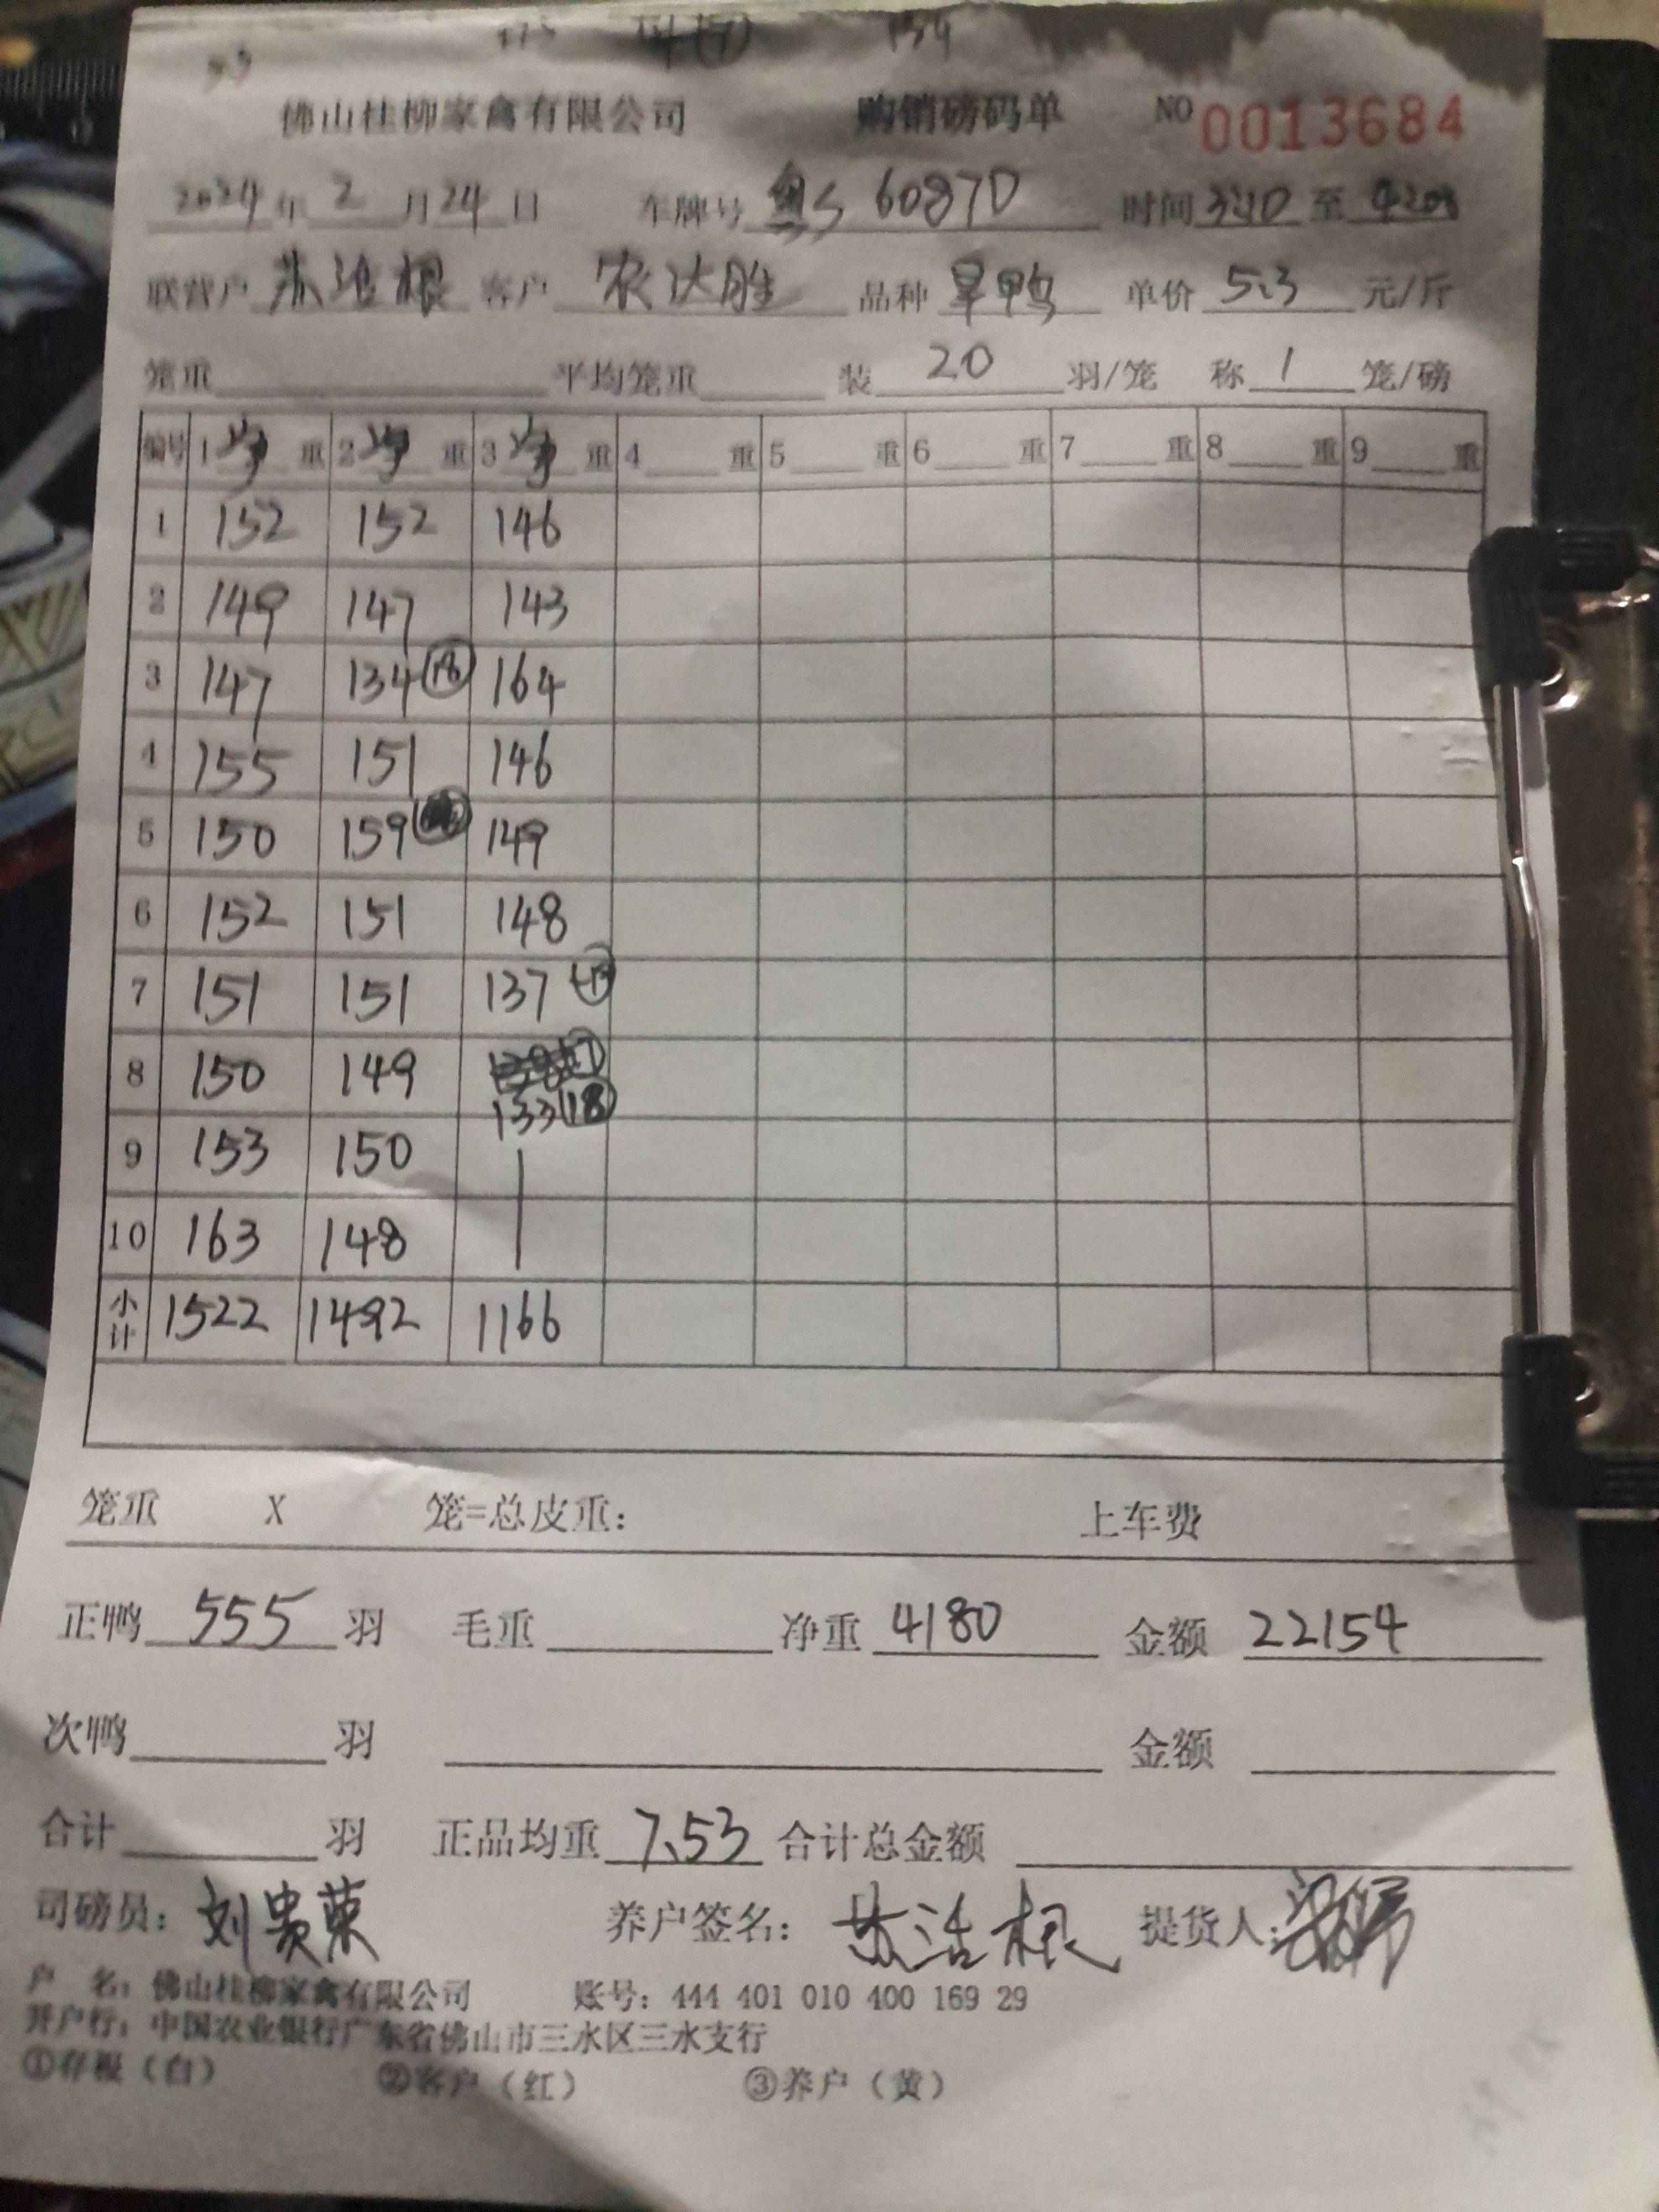 154
佛山桂柳家禽有限公司 购销磅码单 NO 0013684
2024年2月24日 车牌号 粤S 6087D 时间 3:10 至
联营户 苏浩根 客户 农达胜 品种 旱鸭 单价 5.3 元/斤
笼重 平均笼重 装 20 羽/笼 称 1 笼/磅
编号 1 净 重 2 净 重 3 净 重 4 重 5 重 6 重 7 重 8 重 9 重
1 152 152 146
2 149 147 143
3 147 134 (18) 164
4 155 151 146
5 150 159 149
6 152 151 148
7 151 151 137
8 150 149 133 (18)
9 153 150
10 163 148
小计 1522 1492 1166
笼重 X 笼=总皮重: 上车费
正鸭 555 羽 毛重 净重 4180 金额 22154
次鸭 羽 金额
合计 羽 正品均重 7.53 合计总金额
司磅员: 刘贵荣 养户签名: 苏浩根 提货人:
户 名: 佛山桂柳家禽有限公司 账号: 444 401 010 400 169 29
开户行: 中国农业银行广东省佛山市三水区三水支行
①存根(白) ②客户(红) ③养户(黄)